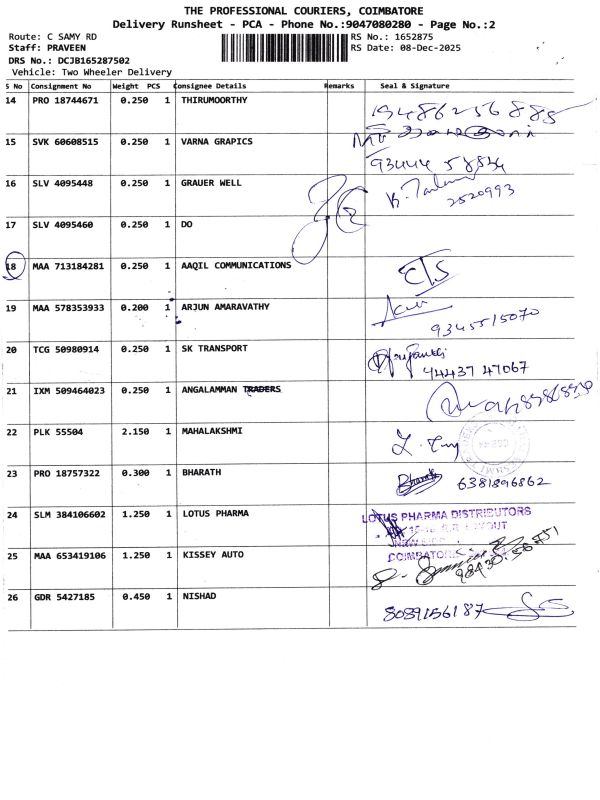 THE PROFESSIONAL COURIERS, COIMBATORE
Delivery Runsheet - PCA - Phone No.:9047080280 - Page No.:2
Route: C SAMY RD
Staff: PRAVEEN
DRS No.: DCJB165287502
Vehicle: Two Wheeler Delivery
RS No.: 1652875
RS Date: 08-Dec-2025
S No Consignment No Weight PCS Consignee Details Remarks Seal & Signature
14 PRO 18744671 0.250 1 THIRUMOORTHY
15 SVK 60608515 0.250 1 VARNA GRAPICS
16 SLV 4095448 0.250 1 GRAUER WELL 2520993
17 SLV 4095460 0.250 1 DO
18 MAA 713184281 0.250 1 AAQIL COMMUNICATIONS
19 MAA 578353933 0.200 1 ARJUN AMARAVATHY 9345515070
20 TCG 50980914 0.250 1 SK TRANSPORT 94437 47067
21 IXM 509464023 0.250 1 ANGALAMMAN TRADERS
22 PLK 55504 2.150 1 MAHALAKSHMI
23 PRO 18757322 0.300 1 BHARATH Bharath 6381896862
24 SLM 384106602 1.250 1 LOTUS PHARMA LOTUS PHARMA DISTRIBUTORS
COIMBATORE
25 MAA 653419106 1.250 1 KISSEY AUTO
26 GDR 5427185 0.450 1 NISHAD 8089156187